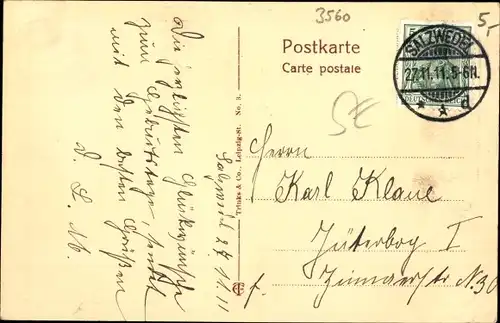 3560
5,-
Postkarte
Carte postale
SALZWEDEL
27.11.11. 5-6N.
* * d
SE
Herrn
Karl Klaue
Jüterbog I
Zinnaerstr N. 30
Trinks & Co., Leipzig-St. No. 3.
Salzwedel 27.11.11
Die herzlichsten Glückwünsche
zum Geburtstage, sendet
mit den besten Grüßen